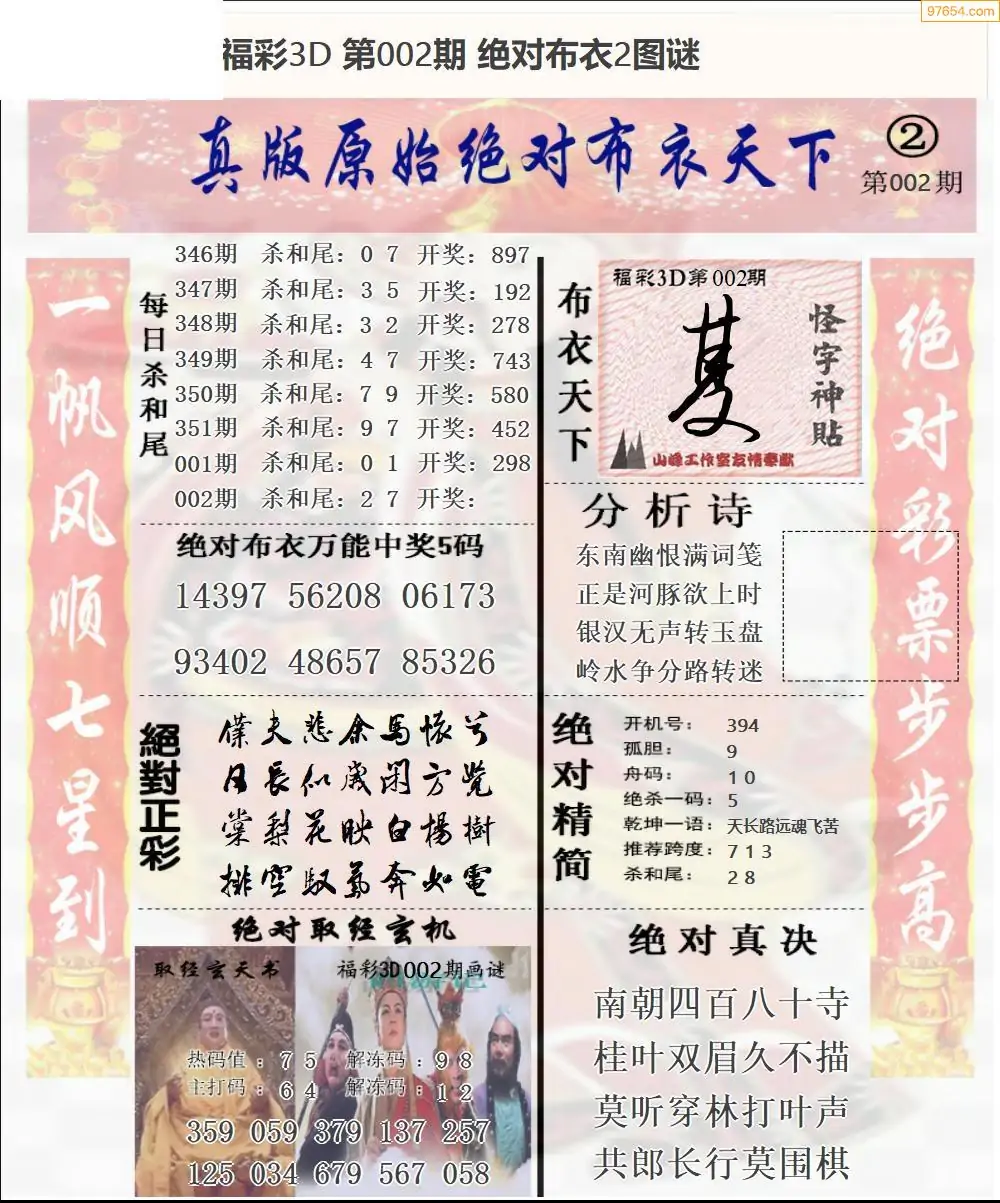 97654.com
福彩3D 第002期 绝对布衣2图谜
真版原始绝对布衣天下
②
第002期
一帆风顺七星到
每日杀和尾
346期 杀和尾：0 7 开奖：897
347期 杀和尾：3 5 开奖：192
348期 杀和尾：3 2 开奖：278
349期 杀和尾：4 7 开奖：743
350期 杀和尾：7 9 开奖：580
351期 杀和尾：9 7 开奖：452
001期 杀和尾：0 1 开奖：298
002期 杀和尾：2 7 开奖：
绝对布衣万能中奖5码
14397 56208 06173
93402 48657 85326
絕對正彩
僕夫悲余馬懷兮
日長似歲閑方覺
棠梨花映白楊樹
排空馭氣奔如電
绝对取经玄机
取经玄天书
福彩3D002期画谜
热码值：7 5 解冻码：9 8
主打码：6 4 解冻码：1 2
359 059 379 137 257
125 034 679 567 058
布衣天下
福彩3D第002期
怪字神貼
山峰工作室友情奉献
分析诗
东南幽恨满词笺
正是河豚欲上时
银汉无声转玉盘
岭水争分路转迷
绝对精简
开机号： 394
孤胆： 9
舟码： 1 0
绝杀一码：5
乾坤一语：天长路远魂飞苦
推荐跨度：7 1 3
杀和尾： 2 8
绝对真决
南朝四百八十寺
桂叶双眉久不描
莫听穿林打叶声
共郎长行莫围棋
绝对彩票步步高